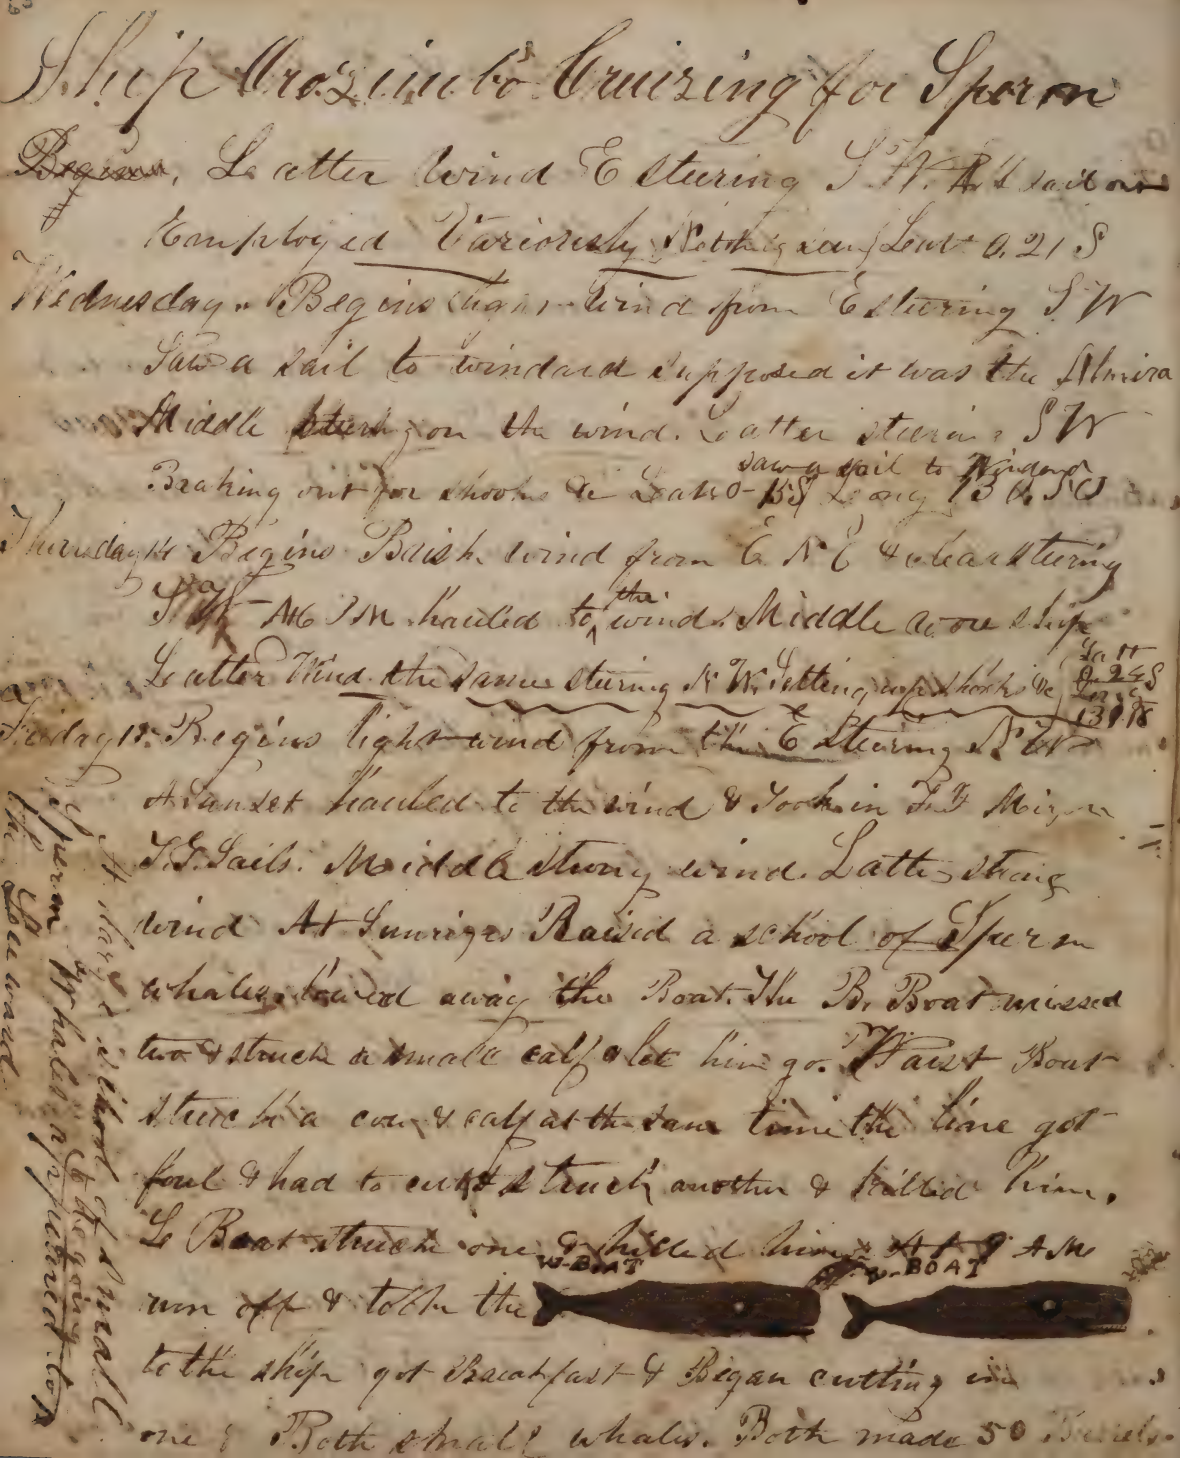 Ship Orozimbo Cruizing for Sperm
Begins, Latter Wind E Stering S W. All sail on
Employed Variously Nothing seen Latt 0.21 S
Wednesday. Begins light wind from E stering S W
Saw a sail to windard supposed it was the Almira
Middle stering on the wind. Latter steering S W
saw a sail to Windard
Braking out for shooks &c Latt 0-15 S Long
Thursday 14 Begins Brisk wind from E N E & clear stering
S W - At 6 PM hauled to the wind. Middle wore ship
Latter Wind the same stering N W. Setting up shooks &c
Latt
0.24 S
Friday 15. Begins light wind from the E Stering N W
At Sunset hauled to the wind & Took in F & Mizen
T. G. Sails. Middle strong wind. Latter strong
wind At Sunrise Raised a school of Sperm
whales. lowed away the Boat. The B. Boat missed
two & struck a small calf & let him go. Waist Boat
struck a cow & calf at the same time the line got
foul & had to cut & struck another & killed him.
L Boat struck one & killed him At 9 AM
W-BOAT
BOAT
run off & took the
to the ship got Breakfast & Began cutting in
one Both small whales. Both made 50 Barrels
At dark a school of small
sperm Whales appeared to be going to
the Leeward